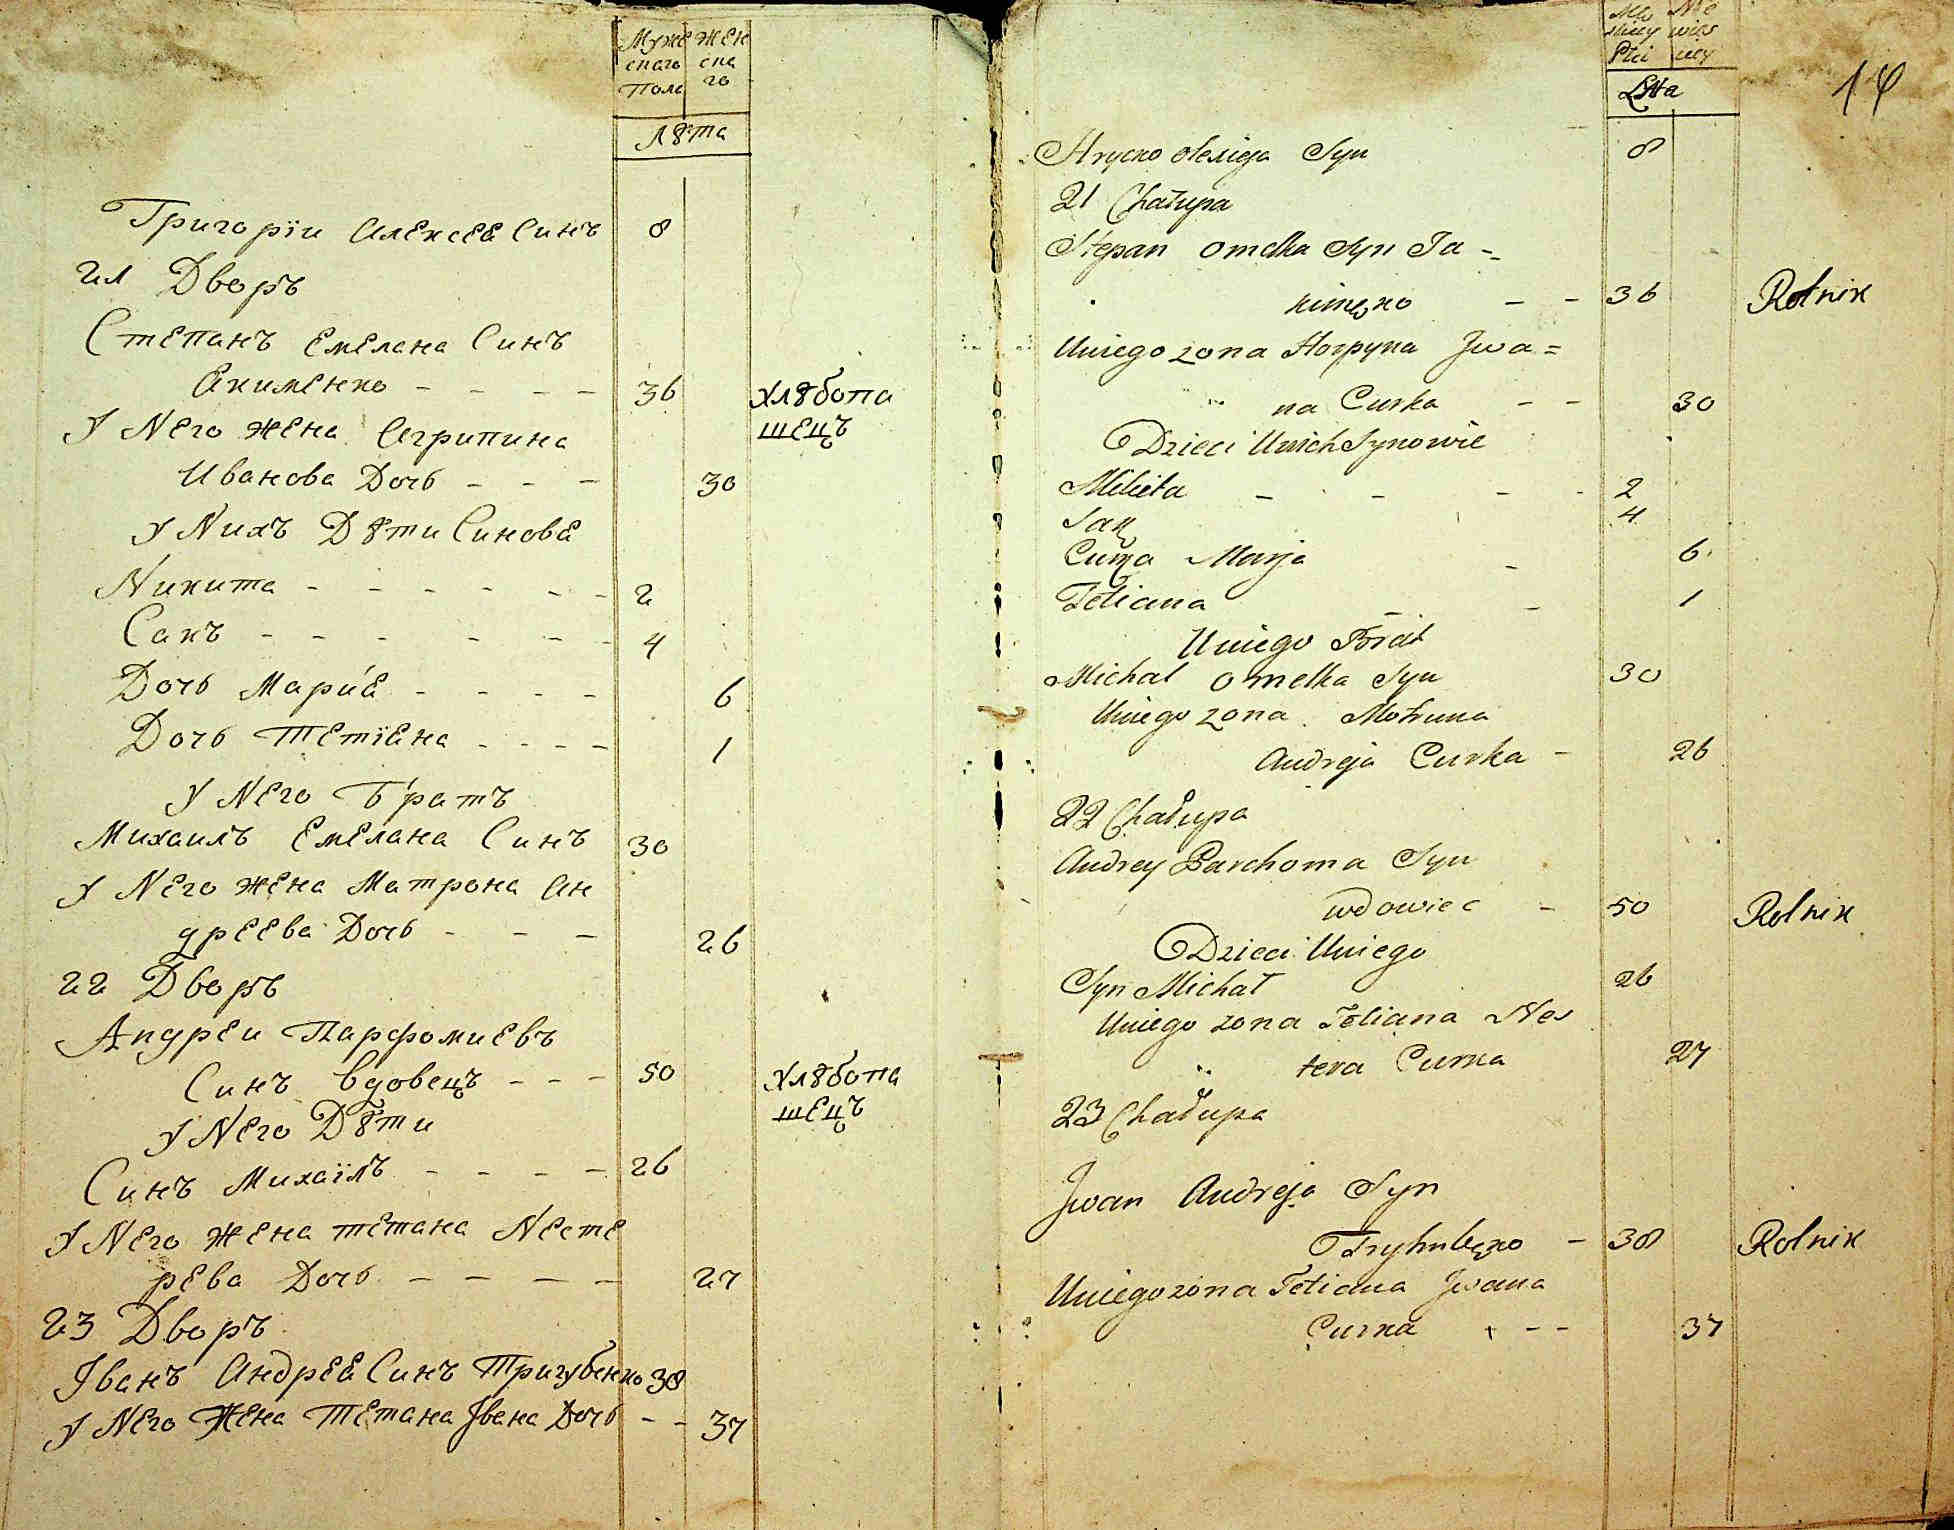 Муже жен
скаго ска
Пола го
Лѣта
Григорїи Алексеѣ Синъ 8
21 Дворъ
Степанъ Емеляна Синъ
Акименко - - - - 36 хлѣбопа
У Него жена Агрипина шецъ
Иванова Дочь - - - 30
у Нихъ Дѣти Синове
Никита - - - - - - 2
Сакъ - - - - - - 4
Дочь Мариѣ - - - - 6
Дочь Тетїѣна - - - - 1
У Него Братъ
Михаилъ Емеляна Синъ 30
У Него жена Матрона Ан
дреева Дочь - - - 26
22 Дворъ
Андреи Парфомиевъ
Синъ вдовецъ - - - 50 хлѣбопа
У Него Дѣти шецъ
Синъ Михаїлъ - - - - 26
У Него жена тетяна Несте
рева Дочь - - - - 27
23 Дворъ
Іванъ Андрея Синъ Тригубенко 38
У Него Жена Тетяна Івана Дочь - - 37
14
Lata
Hrycko Olexieja Syn 8
21 Chałupa
Stepan Omelka Syn Ja =
kimęko - - 36 Rolnik
Uniego zona Horpyna Jwa =
na Curka - - 30
Dzieci Unich Synowie
Mikieta - - - - 2
Sak 4
Curka Marja - 6
Tetiana - - 1
Uniego Brat
Michał Omelka Syn 30
Uniego zona Motruna
Andreja Curka - 26
22 Chałupa
Andrey Parchoma Syn
wdowiec - 50 Rolnik
Dzieci Uniego
Syn Michał 26
Uniego zona Tetiana Nes
tera Curka 27
23 Chałupa
Jwan Andreja Syn
Tryhubęko - 38 Rolnik
Uniego zona Tetiana Jwana
Curka - - - 37